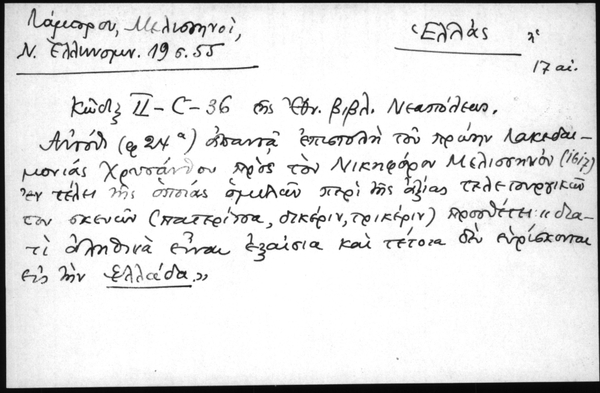 Λάμπρου, Μελισσηνοί,
Ν. Ἑλληνομν. 19 σ. 55
Ἑλλάς
17 αἰ.
Κῶδιξ II-C-36 τῆς Ἐθν. βιβλ. Νεαπόλεως.
Αὐτόθι (φ 24α) ἀπαντᾷ ἐπιστολὴ τοῦ πρώην Λακεδαι-
μονίας Χρυσάνθου πρὸς τὸν Νικηφόρον Μελισσηνὸν (1617)
ἐν τέλει τῆς ὁποίας ὁμιλῶν περὶ τῆς ἀξίας τελετουργικῶν
του σκευῶν (πατερίτσα, δικέριν, τρικέριν) προσθέτει: «δια-
τὶ ἀληθινὰ εἶναι ἐξαίσια καὶ τέτοια δὲν εὑρίσκονται
εἰς τὴν Ἑλλάδα.»